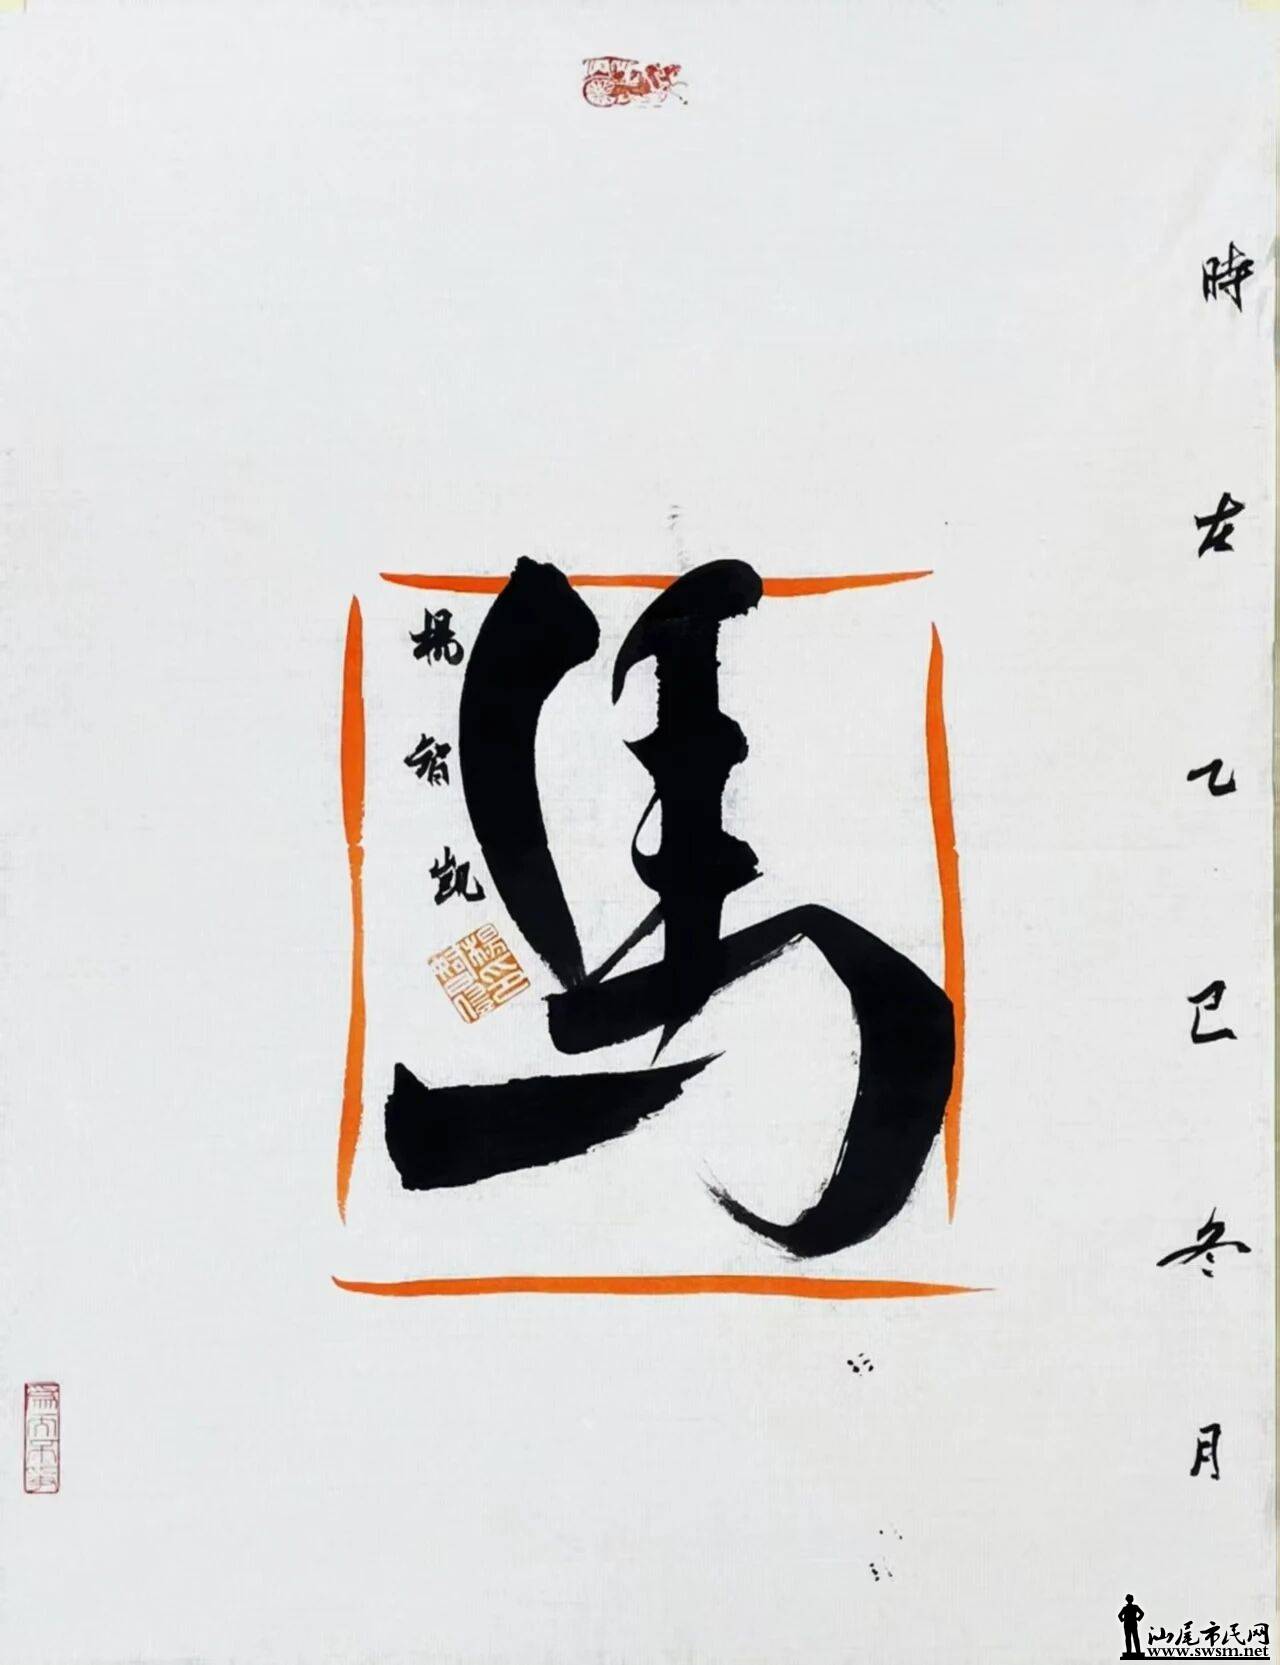 時在乙巳冬月
馬
楊智凱
汕尾市民网
www.swsm.net